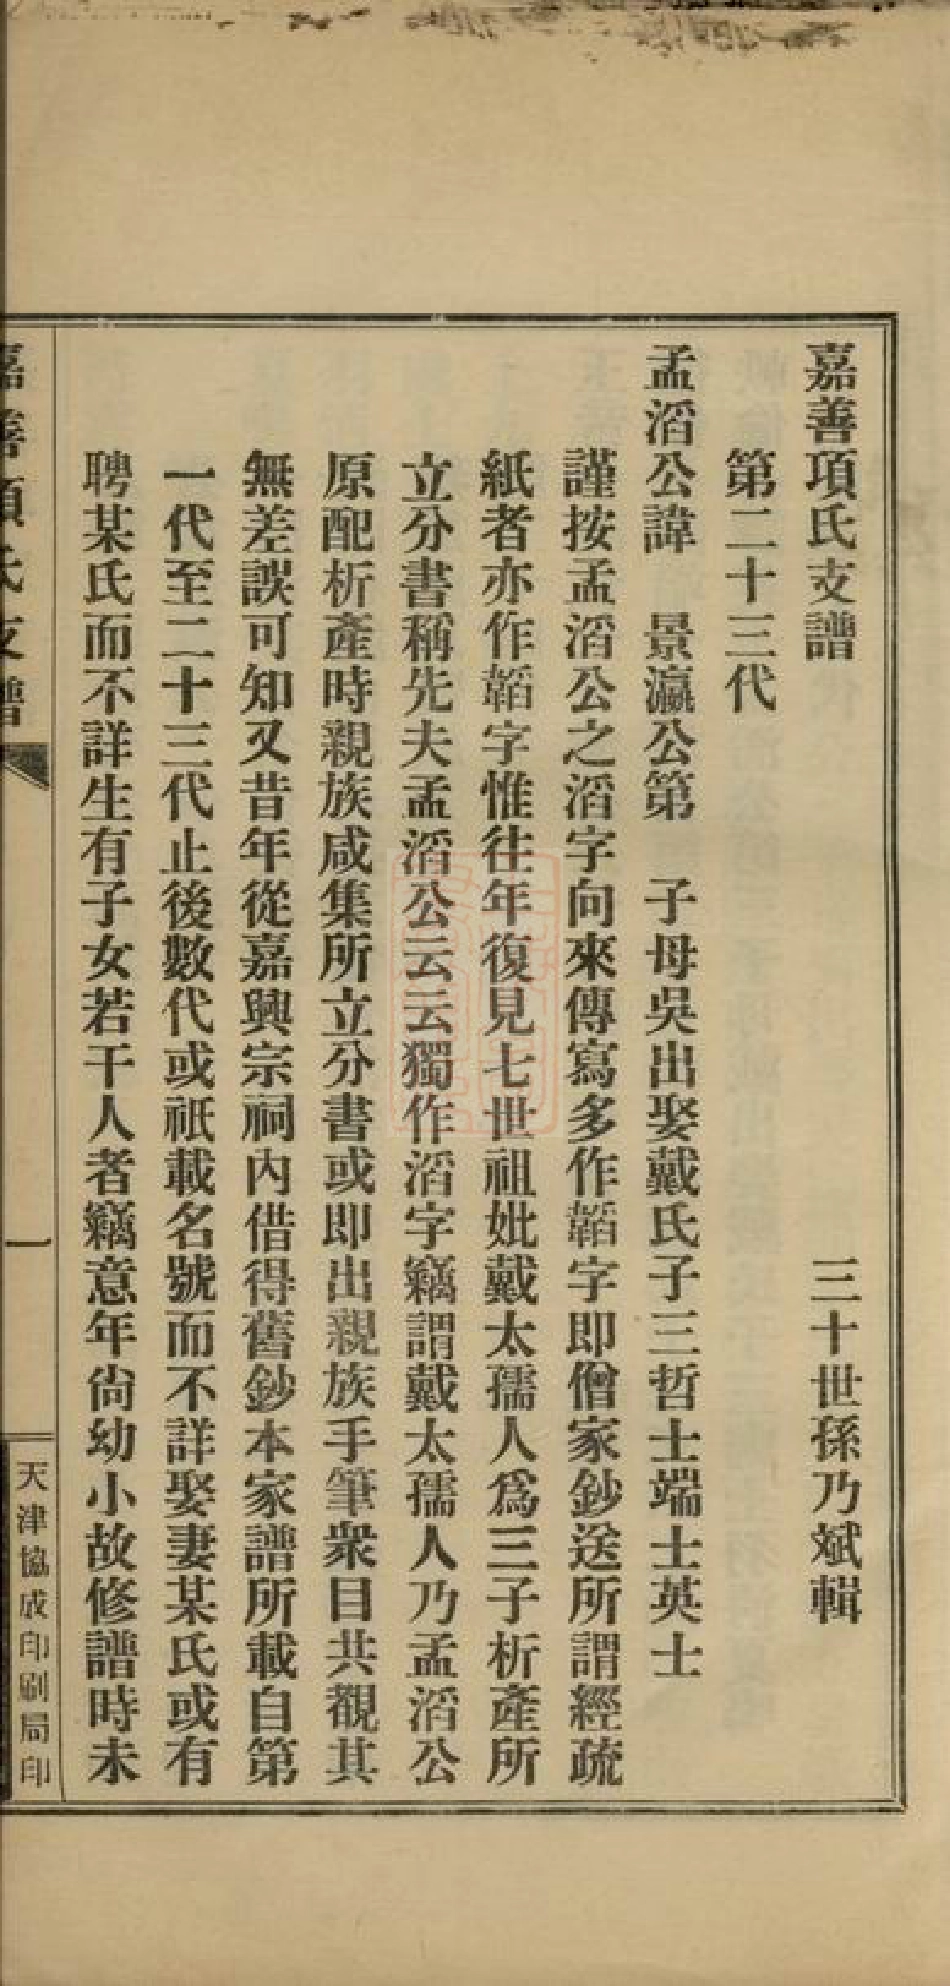 嘉善項氏支譜
三十世孫乃斌輯
第二十三代
孟滔公諱　景瀛公第　子母吳出娶戴氏子三哲士端士英士
謹按孟滔公之滔字向來傳寫多作韜字即僧家鈔送所謂經疏
紙者亦作韜字惟往年復見七世祖妣戴太孺人爲三子析產所
立分書稱先夫孟滔公云云獨作滔字竊謂戴太孺人乃孟滔公
原配析產時親族咸集所立分書或即出親族手筆衆目共觀其
無差誤可知又昔年從嘉興宗祠內借得舊鈔本家譜所載自第
一代至二十三代止後數代或祇載名號而不詳娶妻某氏或有
聘某氏而不詳生有子女若干人者竊意年尙幼小故修譜時未
嘉善項氏支譜
一
天津協成印刷局印